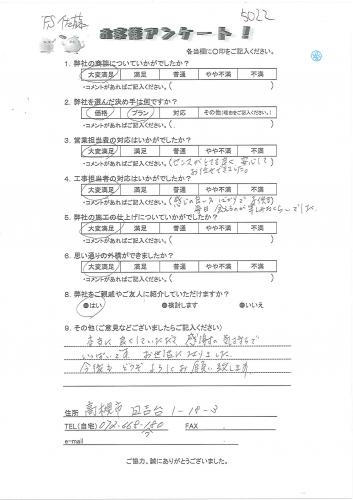 FS 佐藤
5022
お客様アンケート！
各当欄に○印をご記入ください。
1. 弊社の商談についていかがでしたか？
大変満足 満足 普通 やや不満 不満
・コメントがあればご記入ください。(
2. 弊社を選んだ決め手は何ですか？
価格 プラン 対応 その他（理由をご記入ください。）
・コメントがあればご記入ください。(
3. 営業担当者の対応はいかがでしたか？
大変満足 満足 普通 やや不満 不満
・コメントがあればご記入ください。(センスがとても良く安心して
お任せできました。
4. 工事担当者の対応はいかがでしたか？
大変満足 満足 普通 やや不満 不満
・コメントがあればご記入ください。(感じの良い
毎日 会えるのが楽しみなくらいでした。
5. 弊社の施工の仕上げについていかがでしたか？
大変満足 満足 普通 やや不満 不満
・コメントがあればご記入ください。(
6. 思い通りの外構ができましたか？
大変満足 満足 普通 やや不満 不満
・コメントがあればご記入ください。(
8. 弊社をご親戚やご友人に紹介していただけますか？
●はい ●検討します ●いいえ
9. その他（ご意見などございましたらご記入ください）
本当に良くしていただいて 感謝の気持ちで
いっぱいです お世話になりました
今後も どうぞ よろしくお願い致します
住所 高槻市 日吉台 1-19-3
TEL(自宅) 072-668- FAX
e-mail
ご協力、誠にありがとうございました。